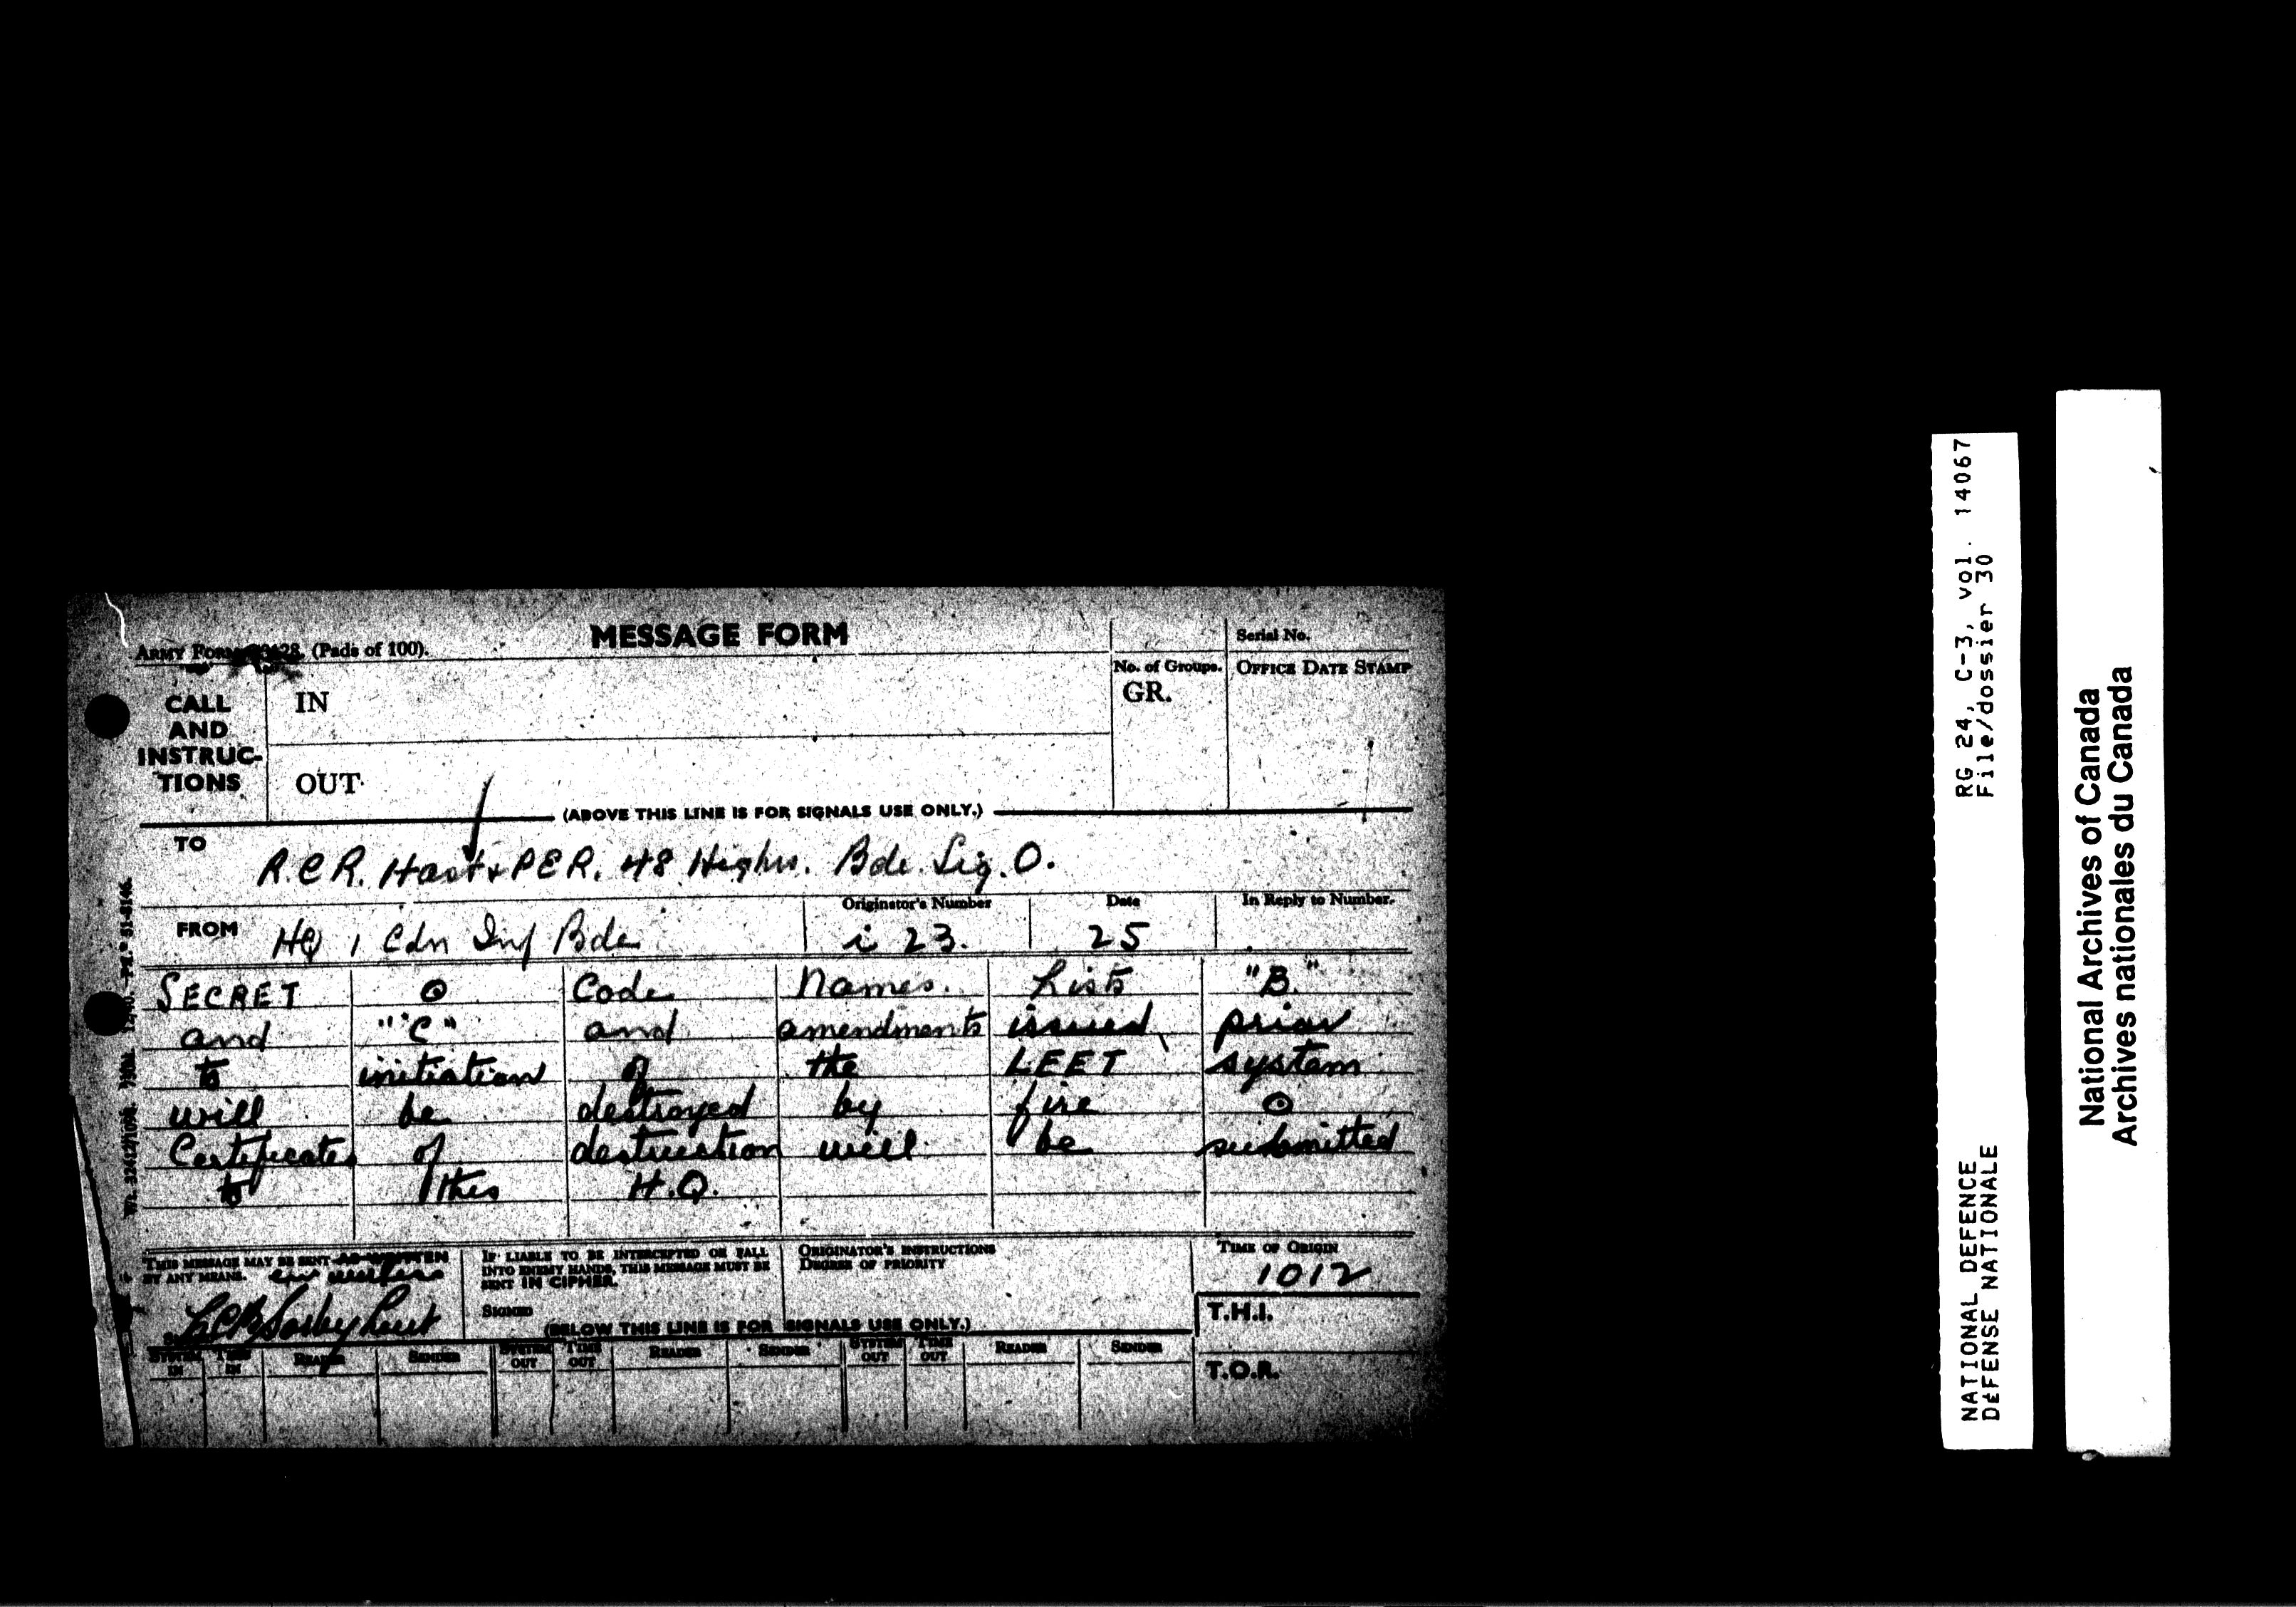 MESSAGE FORM
Serial No.
ARMY FORM (Pads of 100).
No. of Groups.
OFFICE DATE STAMP
CALL AND INSTRUC-TIONS
IN
GR.
OUT
(ABOVE THIS LINE IS FOR SIGNALS USE ONLY.)
TO
R.C.R. Hast & P.E.R. 48 Highrs. Bde. Sig. O.
Originator's Number
Date
In Reply to Number.
FROM HQ 1 Cdn Inf Bde
i 23.
25
SECRET ⊙ Code Names. Lists "B."
and "C" and amendments issued prior
to initiation of the LEET system
will be destroyed by fire ⊙
Certificates of destruction will be submitted
to this H.Q.
THIS MESSAGE MAY BE SENT AS WRITTEN
BY ANY MEANS.
IF LIABLE TO BE INTERCEPTED OR FALL
INTO ENEMY HANDS, THIS MESSAGE MUST BE
SENT IN CIPHER.
SIGNED
ORIGINATOR'S INSTRUCTIONS
DEGREE OF PRIORITY
TIME OF ORIGIN
1012
T.H.I.
(BELOW THIS LINE IS FOR SIGNALS USE ONLY.)
SYSTEM IN TIME IN READER SENDER SYSTEM OUT TIME OUT READER SENDER SYSTEM OUT TIME OUT READER SENDER
T.O.R.
NATIONAL DEFENCE RG 24, C-3, vol. 14067
DÉFENSE NATIONALE File/dossier 30
National Archives of Canada
Archives nationales du Canada